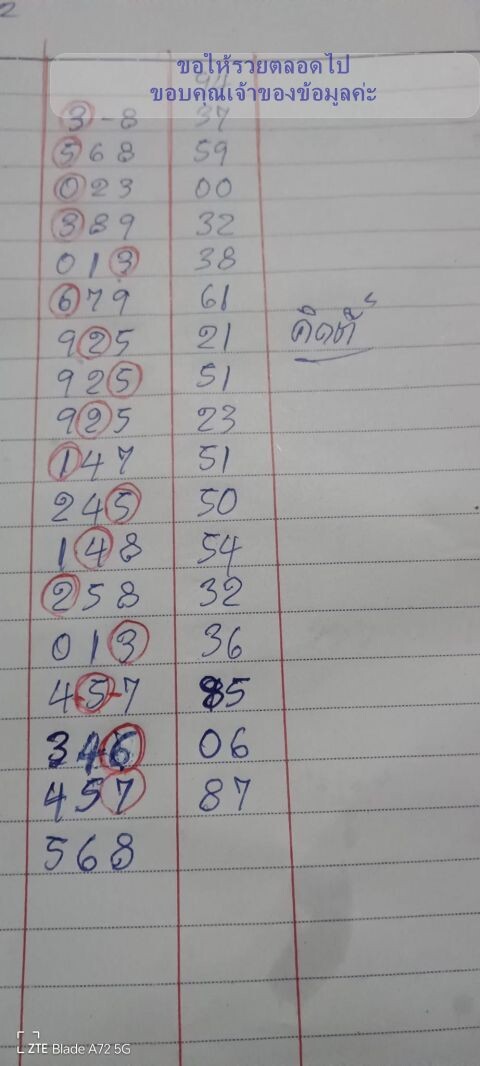 2
ขอให้รวยตลอดไป
ขอบคุณเจ้าของข้อมูลค่ะ
3-8 37
568 59
023 00
389 32
013 38
679 61
925 21
925 51
925 23
147 51
245 50
148 54
258 32
013 36
4-5-7 85
346 06
457 87
568
ZTE Blade A72 5G